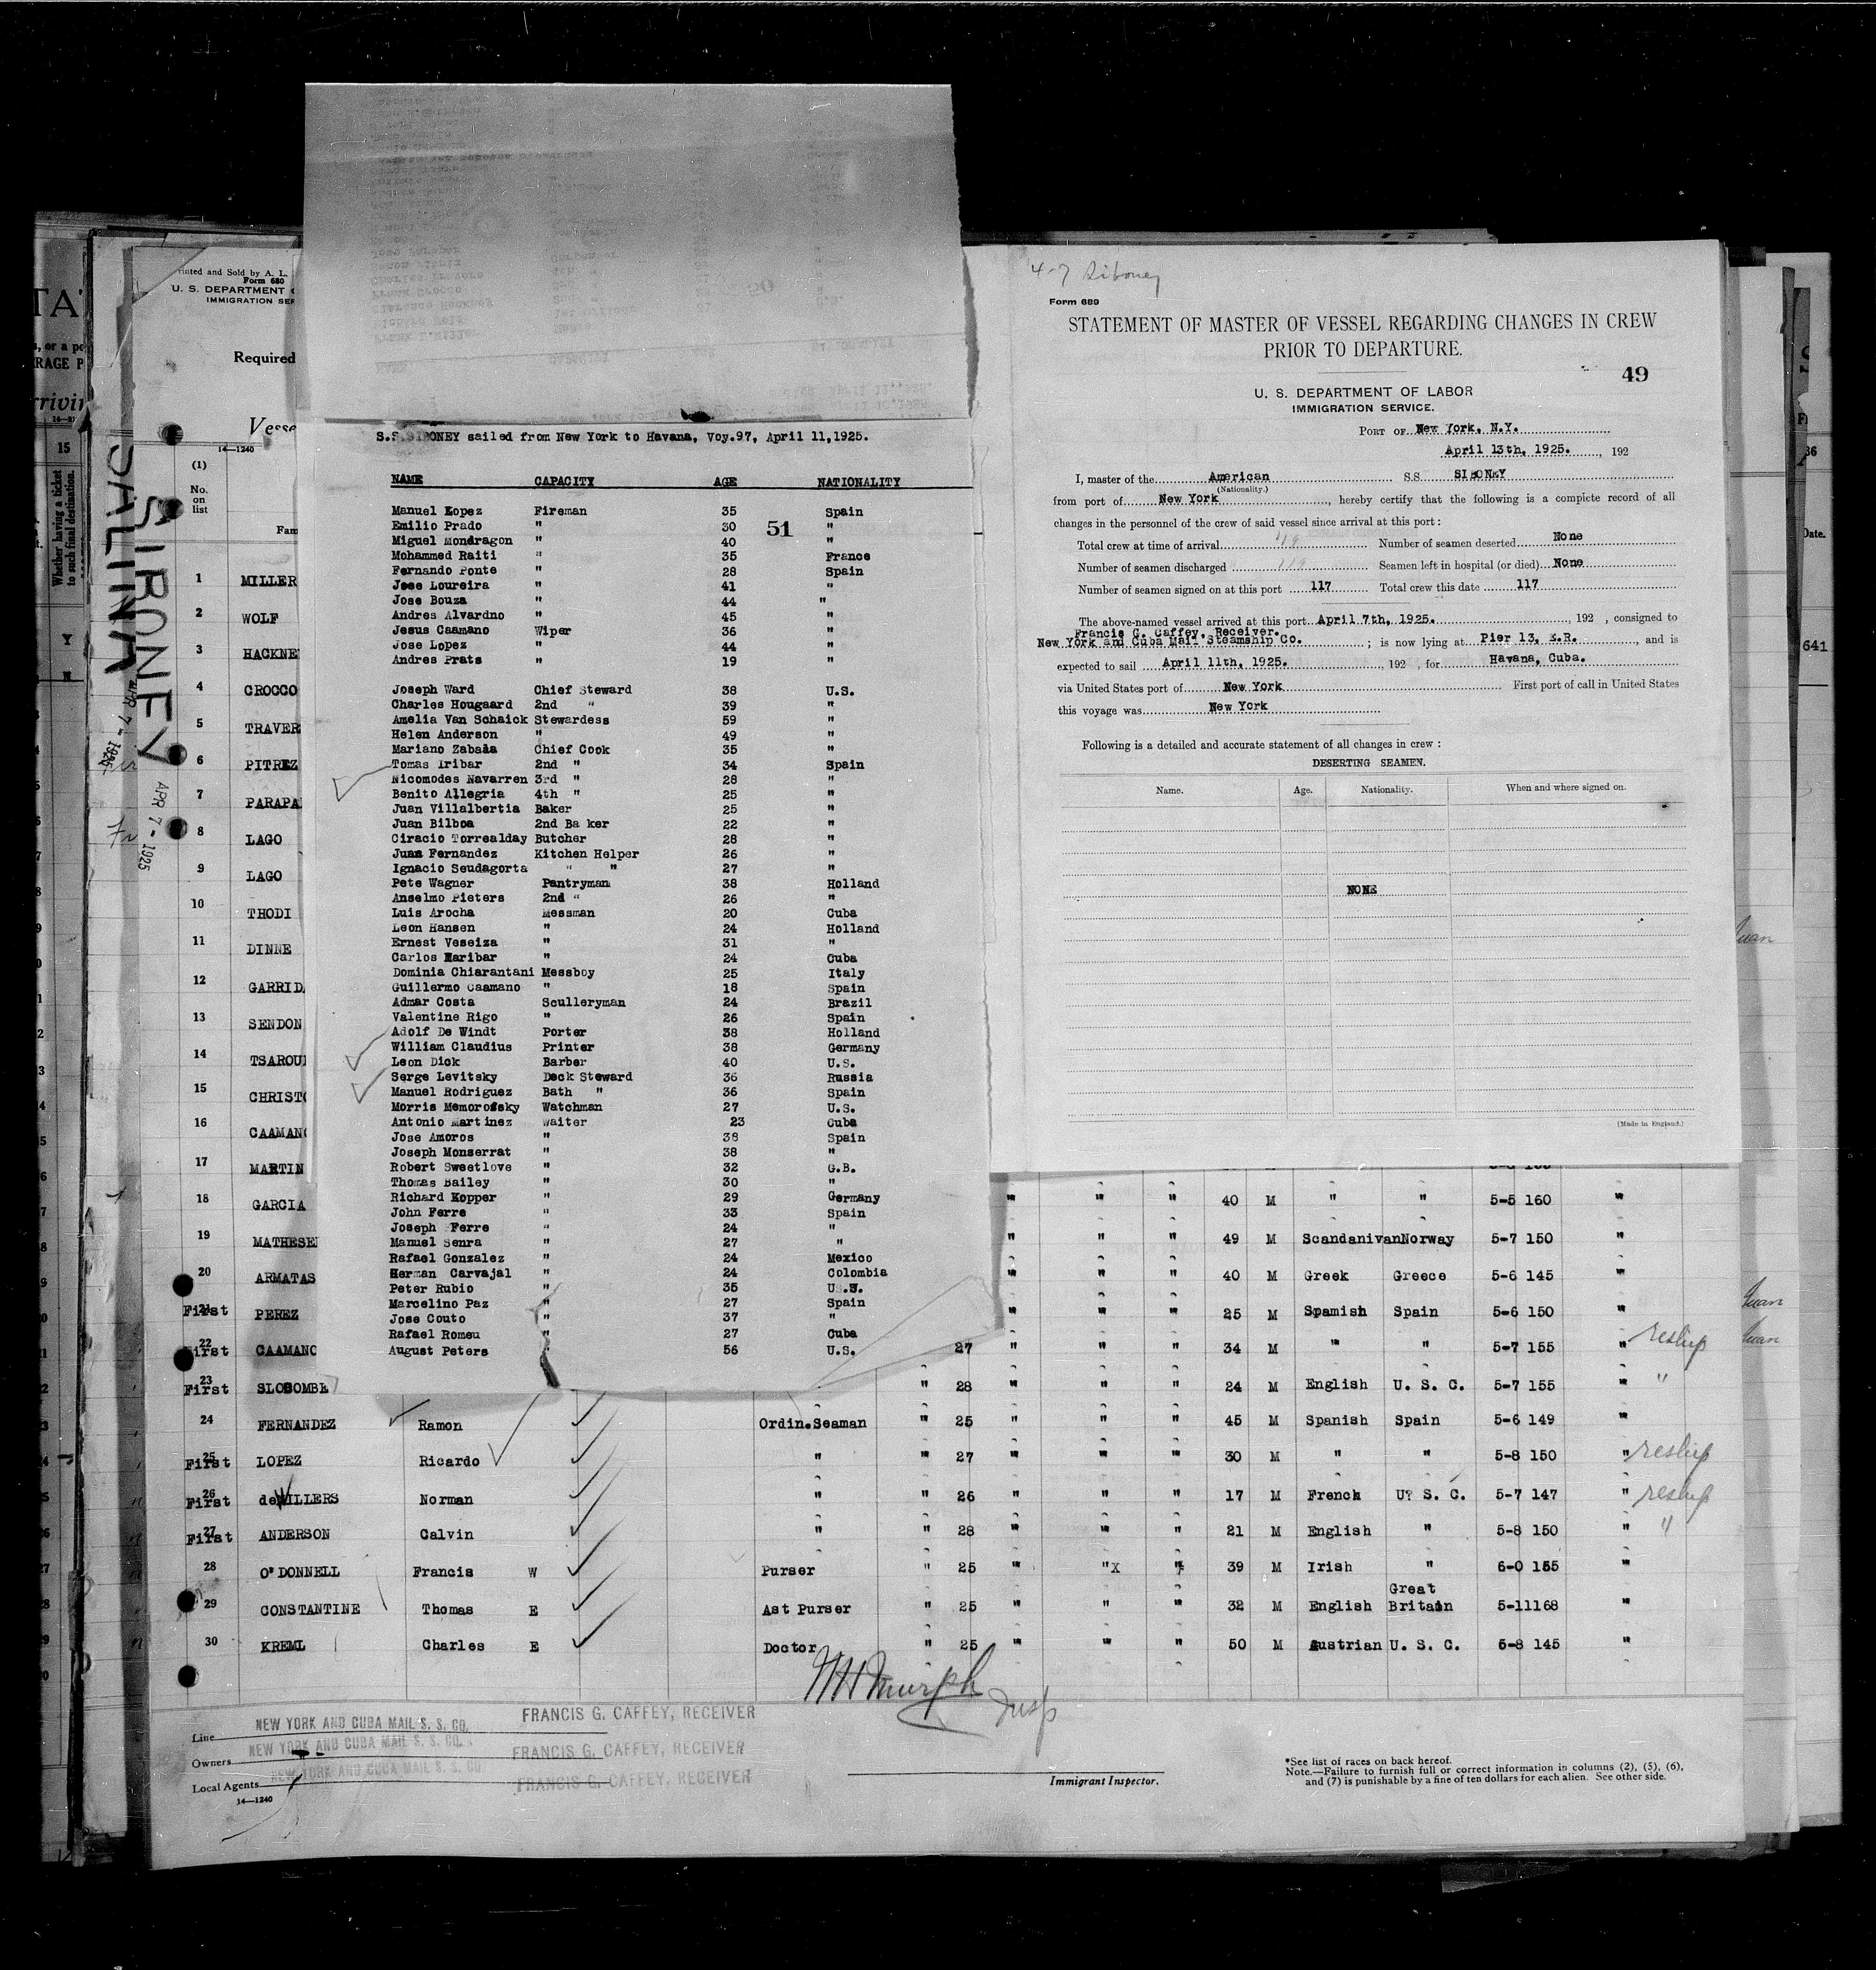 4-7 Siboney
Form 689
STATEMENT OF MASTER OF VESSEL REGARDING CHANGES IN CREW
PRIOR TO DEPARTURE.
49
U. S. DEPARTMENT OF LABOR
IMMIGRATION SERVICE.
PORT OF New York, N.Y.
April 13th, 1925. , 192
I, master of the American S.S. SIBONEY
(Nationality.)
from port of New York , hereby certify that the following is a complete record of all
changes in the personnel of the crew of said vessel since arrival at this port:
Total crew at time of arrival Number of seamen deserted None
Number of seamen discharged Seamen left in hospital (or died) None
Number of seamen signed on at this port 117 Total crew this date 117
The above-named vessel arrived at this port April 7th, 1925. , 192 , consigned to
Francis G. Caffey, Receiver.
New York and Cuba Mail Steamship Co. ; is now lying at Pier 13, E.R. , and is
expected to sail April 11th, 1925. , 192 , for Havana, Cuba.
via United States port of New York First port of call in United States
this voyage was New York
Following is a detailed and accurate statement of all changes in crew :
DESERTING SEAMEN.
Name. Age. Nationality. When and where signed on.
NONE
(Made in England.)
S.S.SIBONEY sailed from New York to Havana, Voy.97, April 11,1925.
NAME CAPACITY AGE NATIONALITY
51
Manuel Lopez Fireman 35 Spain
Emilio Prado " 30 "
Miguel Mondragon " 40 "
Mohammed Raiti " 35 France
Fernando Ponte " 28 Spain
Jose Loureira " 41 "
Jose Bouza " 44 "
Andres Alvardno " 45 "
Jesus Caamano Wiper 36 "
Jose Lopez " 44 "
Andres Prats " 19 "
Joseph Ward Chief Steward 38 U.S.
Charles Hougaard 2nd " 39 "
Amelia Van Schaick Stewardess 59 "
Helen Anderson " 49 "
Mariano Zabala Chief Cook 35 "
Tomas Iribar 2nd " 34 Spain
Nicomodes Navarren 3rd " 28 "
Benito Allegria 4th " 25 "
Juan Villalbertia Baker 25 "
Juan Bilboa 2nd Ba ker 22 "
Ciracio Torrealday Butcher 28 "
Juan Fernandez Kitchen Helper 26 "
Ignacio Seudagorta " " 27 "
Pete Wagner Pantryman 38 Holland
Anselmo Pieters 2nd " 26 "
Luis Arocha Messman 20 Cuba
Leon Hansen " 24 Holland
Ernest Veseiza " 31 "
Carlos Maribar " 24 Cuba
Dominia Chiarantani Messboy 25 Italy
Guillermo Caamano " 18 Spain
Admar Costa Sculleryman 24 Brazil
Valentine Rigo " 26 Spain
Adolf De Windt Porter 38 Holland
William Claudius Printer 38 Germany
Leon Dick Barber 40 U.S.
Serge Levitsky Deck Steward 36 Russia
Manuel Rodriguez Bath " 36 Spain
Morris Memorofsky Watchman 27 U.S.
Antonio Martinez Waiter 23 Cuba
Jose Amoros " 38 Spain
Joseph Monserrat " 38 "
Robert Sweetlove " 32 G.B.
Thomas Bailey " 30 "
Richard Kopper " 29 Germany
John Ferre " 33 Spain
Joseph Ferre " 24 "
Manuel Senra " 27 "
Rafael Gonzalez " 24 Mexico
Herman Carvajal " 24 Colombia
Peter Rubio " 35 U.S.
Marcelino Paz " 27 Spain
Jose Couto " 37 "
Rafael Romeu " 27 Cuba
August Peters " 56 U.S.
rinted and Sold by A. L.
Form 680
U. S. DEPARTMENT
IMMIGRATION SER
Required
Vesse
14—1240
(1)
No.
on
list
Fam
SALINA
SIBONEY
APR 7 - 1925
APR 7 - 1925
1 MILLER
2 WOLF
3 HACKNE
4 CROCCO
5 TRAVER
6 PITREZ
7 PARAPA
8 LAGO
9 LAGO
10 THODI
11 DINNE
12 GARRID
13 SENDON
14 TSAROU
15 CHRISTO
16 CAAMANO
17 MARTIN
18 GARCIA " " " 40 M " " 5-5 160 "
19 MATHESE " " " 49 M Scandanivan Norway 5-7 150 "
20 ARMATAS " " " 40 M Greek Greece 5-6 145 "
21 First PEREZ " " " 25 M Spamish Spain 5-6 150 "
22 First CAAMANO 27 " " " 34 M " " 5-7 155 " reship
23 First SLOCOMBE " 28 " " " 24 M English U. S. C. 5-7 155 " "
24 FERNANDEZ Ramon Ordin.Seaman " 25 " " " 45 M Spanish Spain 5-6 149 "
25 First LOPEZ Ricardo " " 27 " " " 30 M " " 5-8 150 " reship
26 First deWILLERS Norman " " 26 " " " 17 M French U? S. C. 5-7 147 " reship
27 First ANDERSON Calvin " " 28 " " " 21 M English " 5-8 150 " "
28 O'DONNELL Francis W Purser " 25 " "X " 39 M Irish " 6-0 155 "
29 CONSTANTINE Thomas E Ast Purser " 25 " " " 32 M English Great Britain 5-11168 "
30 KREML Charles E Doctor " 25 " " " 50 M Austrian U. S. C. 5-8 145 "
Insp
Line NEW YORK AND CUBA MAIL S. S. CO. FRANCIS G. CAFFEY, RECEIVER
Owners NEW YORK AND CUBA MAIL S. S. CO. FRANCIS G. CAFFEY, RECEIVER
Local Agents NEW YORK AND CUBA MAIL S. S. CO. FRANCIS G. CAFFEY, RECEIVER
14—1240
Immigrant Inspector.
*See list of races on back hereof.
Note.—Failure to furnish full or correct information in columns (2), (5), (6),
and (7) is punishable by a fine of ten dollars for each alien. See other side.
15
Whether having a ticket
to such final destination.
Date.
641